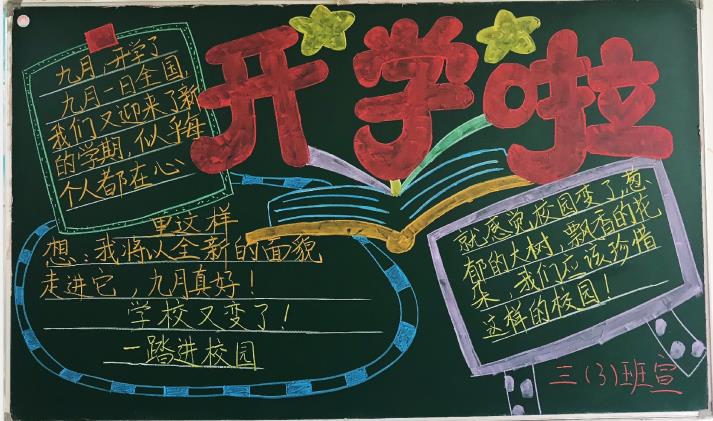 开学啦
九月,开学了
九月一日全国
我们又迎来了新
的学期,似乎每
个人都在心
里这样
想:我将以全新的面貌
走进它,九月真好!
学校又变了!
一踏进校园
就感觉校园变了,葱
郁的大树,飘香的花
朵,我们应该珍惜
这样的校园!
三(3)班宣